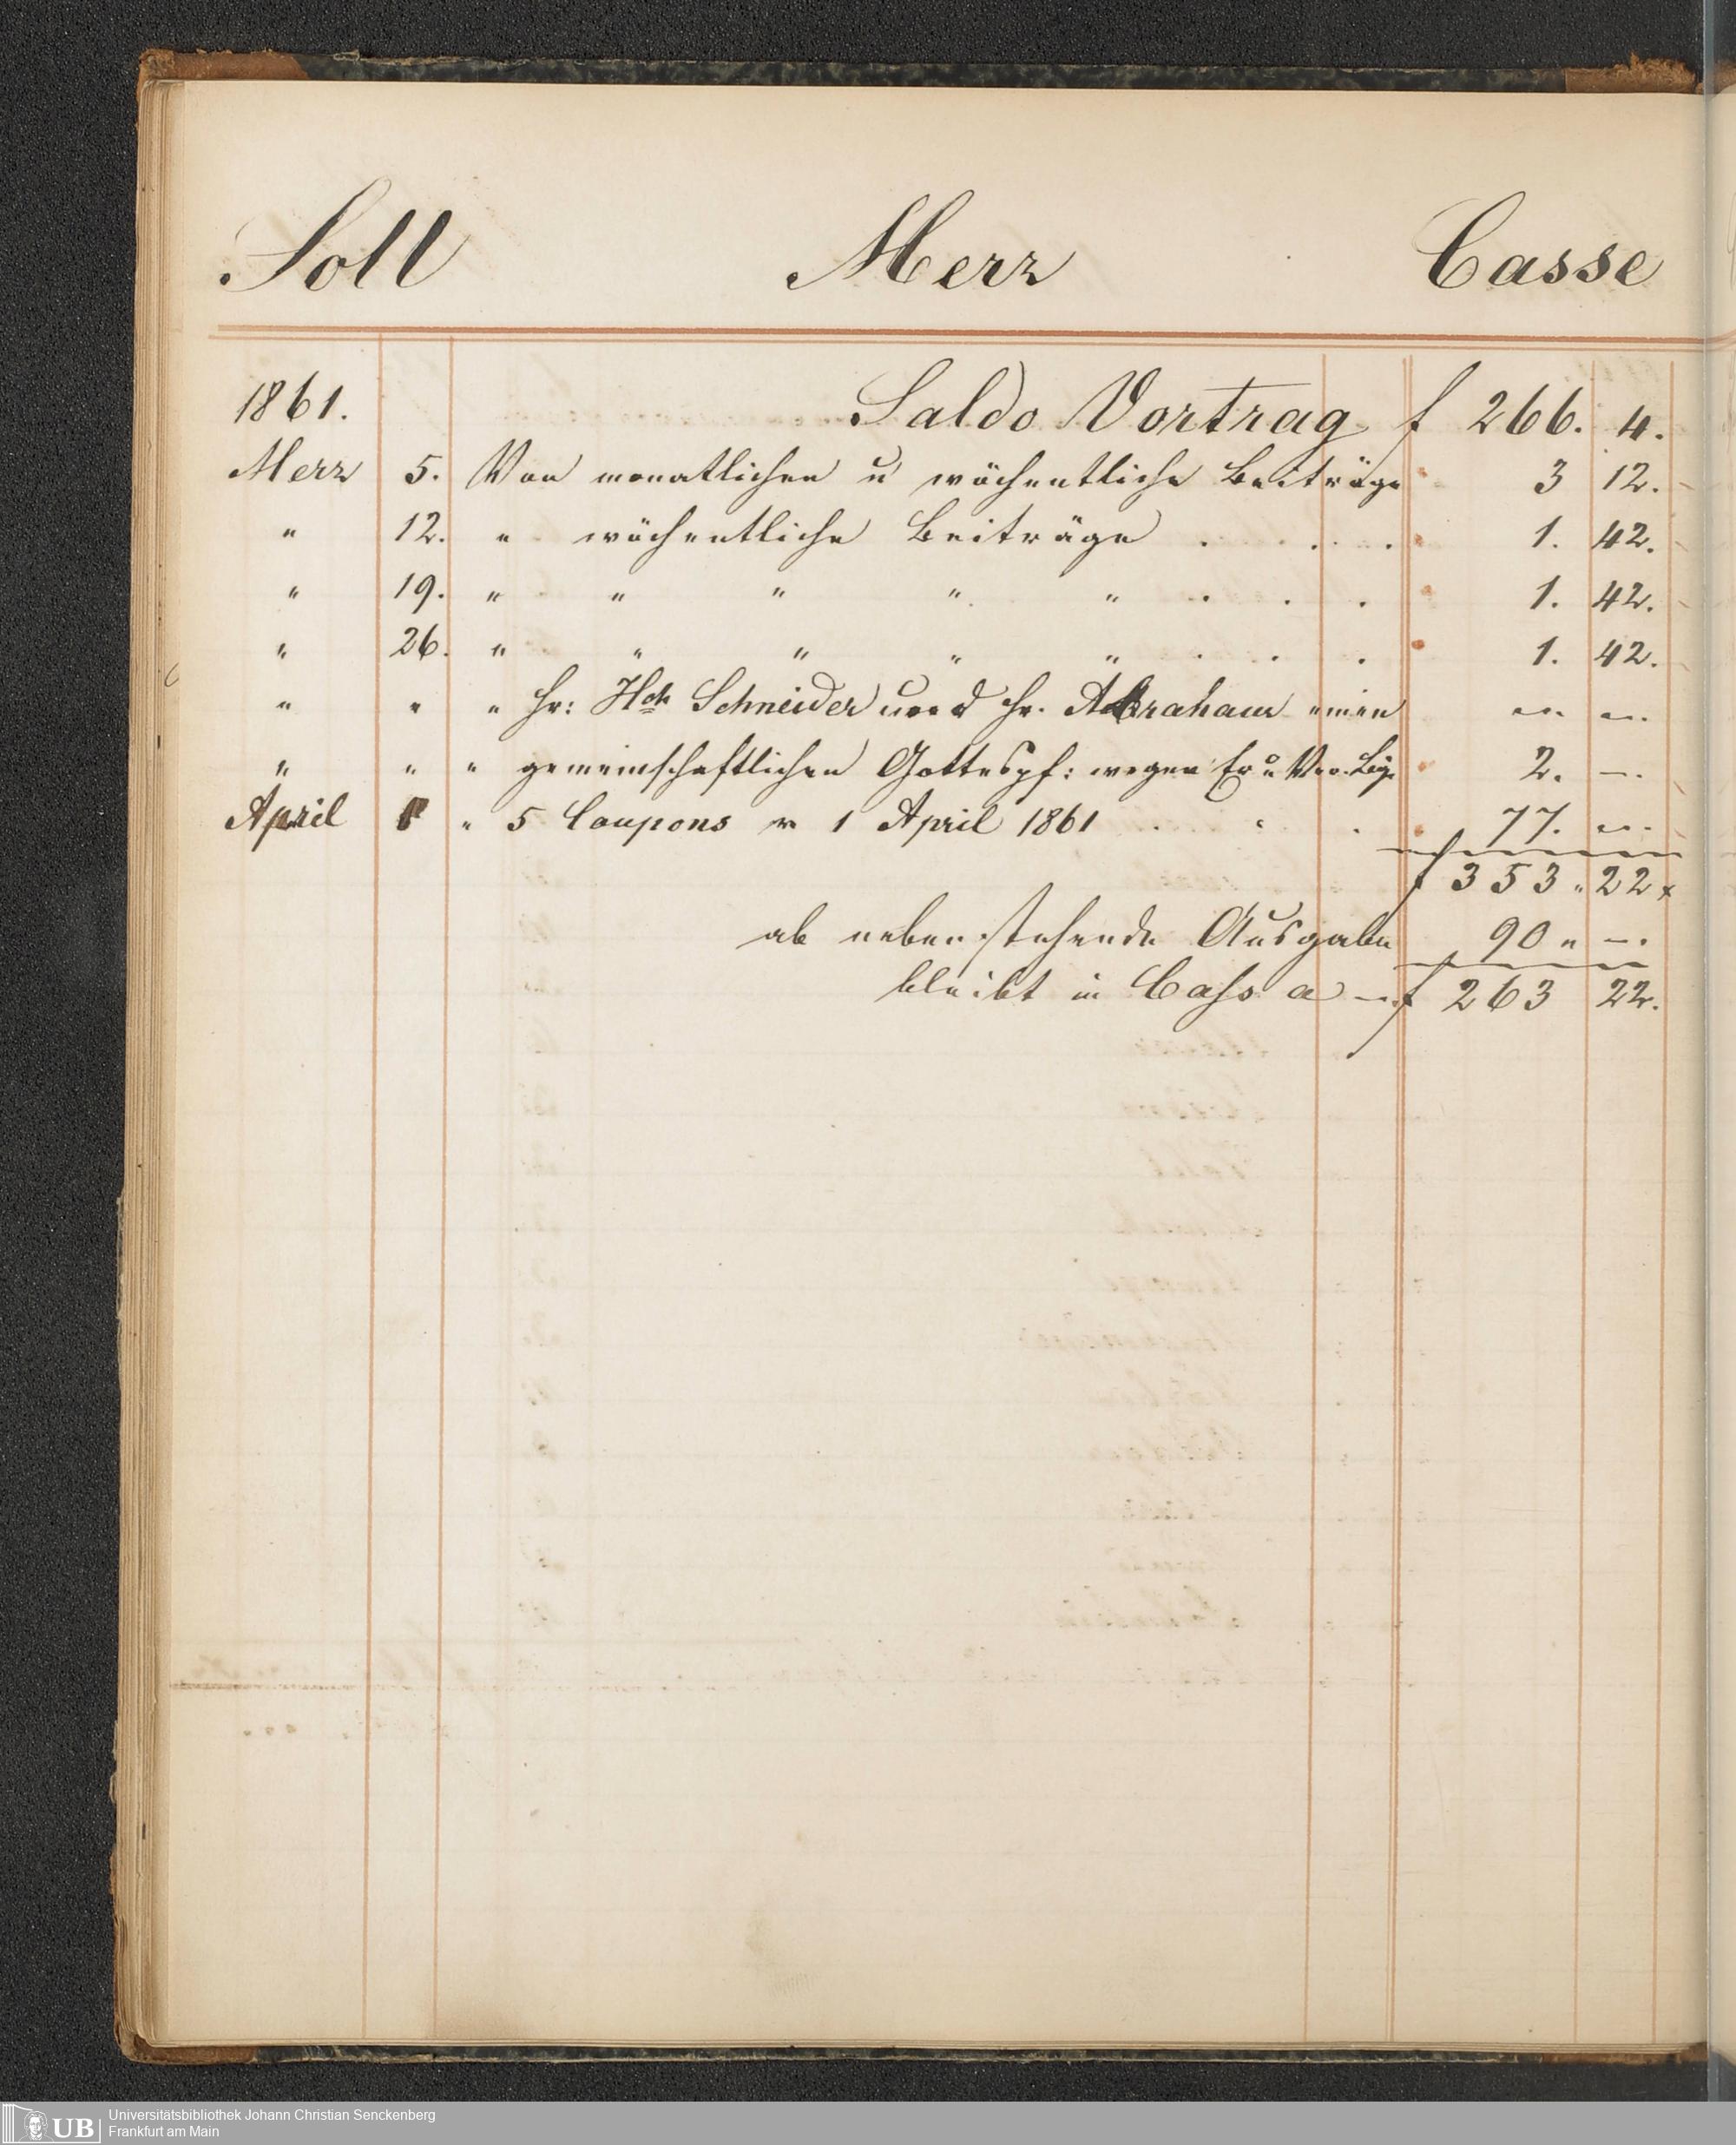 Soll Merz Casse
1861. Saldo Vortrag f 266. 4.
Merz 5. Von monatlichen u wöchentliche Beiträge " 3 12.
" 12. " wöchentliche Beiträge . . . . " 1. 42.
" 19. " " " " " . . . " 1. 42.
" 26. " " " " " . . . " 1. 42.
" " " Hr: Hch Schneider und Hr. Abraham einen " "
" " " gemeinschaftlichen Gottespf: wegen u " 2. —.
April 1 " 5 Coupons pr 1 April 1861 . . . " 77. "
f 353 " 22 x
ab nebenstehende Ausgabe 90 " —.
bleibt in Cassa — f 263 22.
UB Universitätsbibliothek Johann Christian Senckenberg
Frankfurt am Main